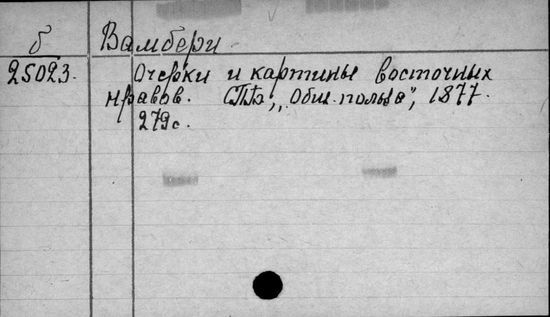 б Вамбери
25023. Очерки и картины восточных
нравов. СПб, „Общ. польза", 1877.
279с.